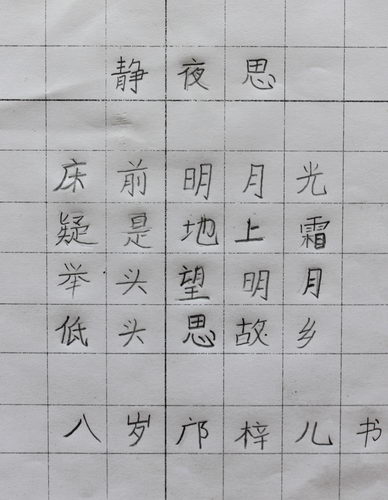 静夜思
床前明月光
疑是地上霜
举头望明月
低头思故乡
八岁邝梓儿书